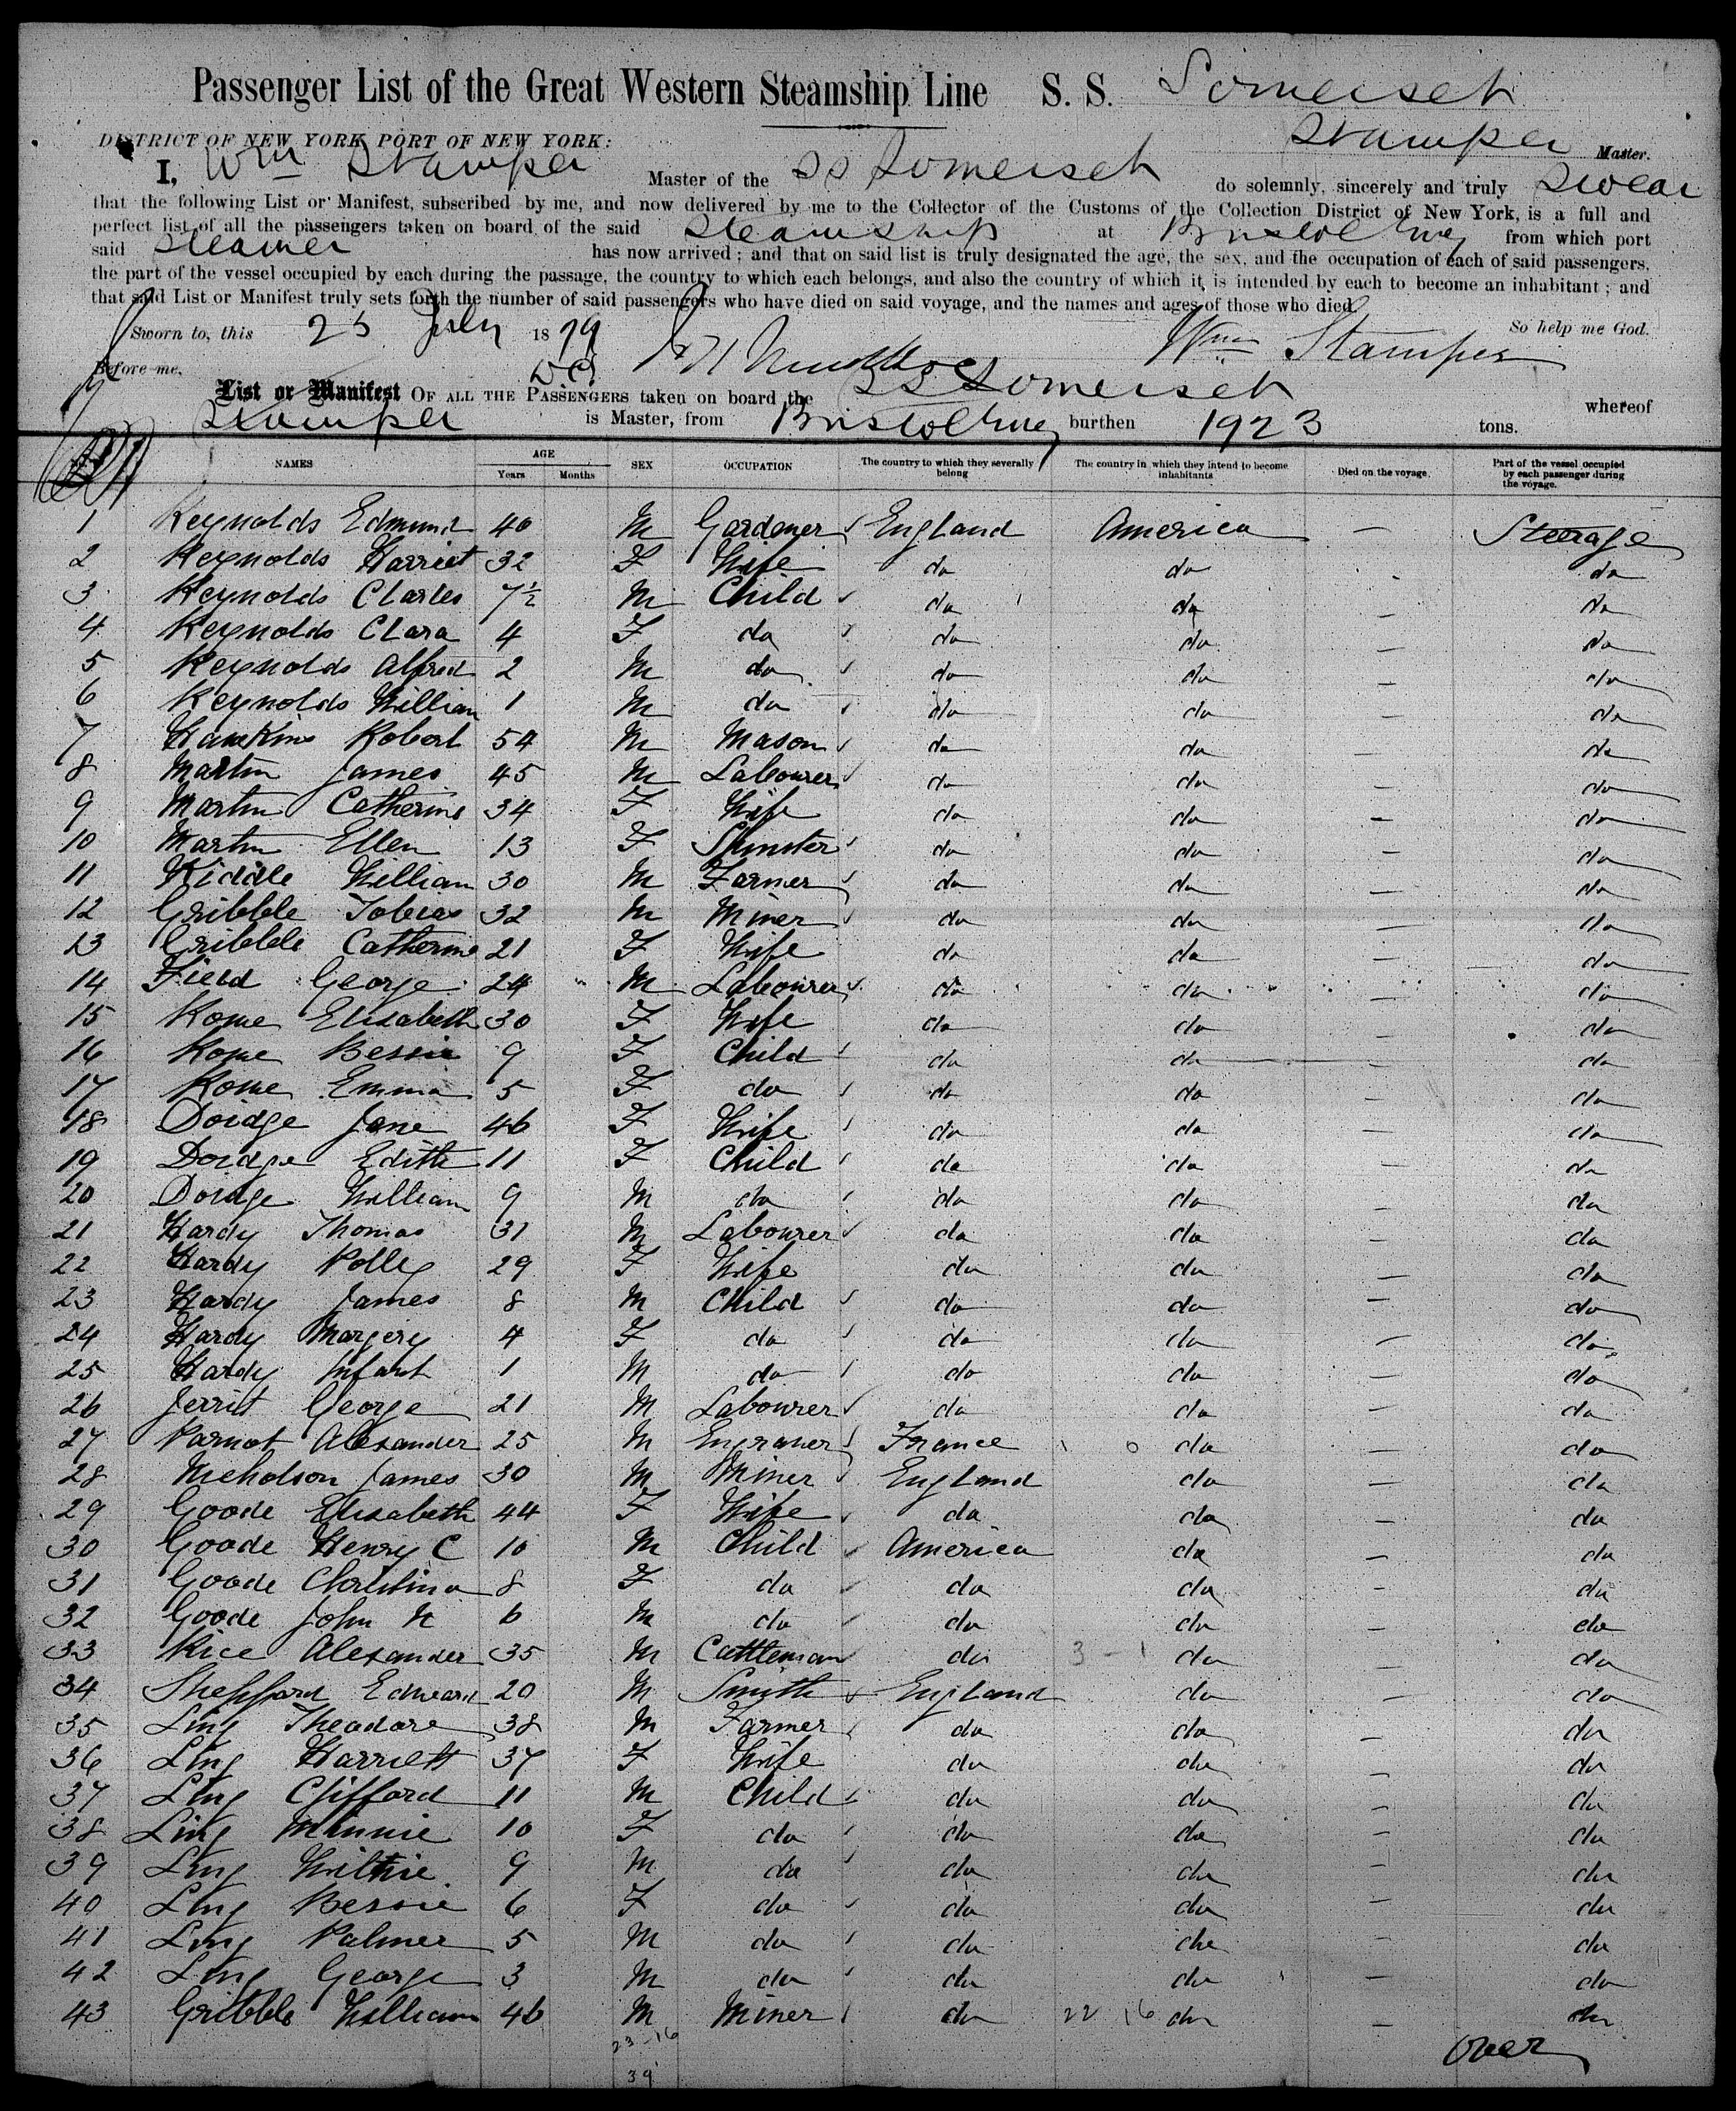 Passenger List of the Great Western Steamship Line S. S. Somerset
DISTRICT OF NEW YORK PORT OF NEW YORK: Stamper Master.
I, Wm Stamper Master of the SS Somerset do solemnly, sincerely and truly Swear
that the following List or Manifest, subscribed by me, and now delivered by me to the Collector of the Customs of the Collection District of New York, is a full and
perfect list of all the passengers taken on board of the said Steamship at Bristol Eng from which port
said Steamer has now arrived; and that on said list is truly designated the age, the sex, and the occupation of each of said passengers,
the part of the vessel occupied by each during the passage, the country to which each belongs, and also the country of which it is intended by each to become an inhabitant; and
that said List or Manifest truly sets forth the number of said passengers who have died on said voyage, and the names and ages of those who died.
Sworn to, this 25 July 1879 Wm Stamper So help me God.
Before me,
List or Manifest OF ALL THE PASSENGERS taken on board the SS Somerset whereof
Stamper is Master, from Bristol Eng burthen 1923 tons.
NAMES AGE Years Months SEX OCCUPATION The country to which they severally belong The country in which they intend to become inhabitants Died on the voyage. Part of the vessel occupied by each passenger during the voyage.
1 Reynolds Edmund 40 M Gardener England America — Steerage
2 Reynolds Harriet 32 F Wife do do do
3 Reynolds Charles 7½ M Child do do — do
4 Reynolds Clara 4 F do do do — do
5 Reynolds Alfred 2 M do do do — do
6 Reynolds William 1 M do do do — do
7 Hawkins Robert 54 M Mason do do — do
8 Martin James 45 M Labourer do do — do
9 Martin Catherine 34 F Wife do do — do
10 Martin Ellen 13 F Spinster do do — do
11 Kiddle William 30 M Farmer do do — do
12 Gribble Tobias 32 M Miner do do — do
13 Gribble Catherine 21 F Wife do do — do
14 Field George 24 M Labourer do do — do
15 Rowe Elisabeth 30 F Wife do do — do
16 Rowe Bessie 9 F Child do do — do
17 Rowe Emma 5 F do do do — do
18 Doidge Jane 46 F Wife do do — do
19 Doidge Edith 11 F Child do do — do
20 Doidge William 9 M do do do — do
21 Hardy Thomas 31 M Labourer do do — do
22 Hardy Polly 29 F Wife do do — do
23 Hardy James 8 M Child do do — do
24 Hardy Margery 4 F do do do — do
25 Hardy Infant 1 M do do do — do
26 Jerrit George 21 M Labourer do do — do
27 Parnot Alexander 25 M Engraver France do — do
28 Nicholson James 30 M Miner England do — do
29 Goode Elisabeth 44 F Wife do do — do
30 Goode Henry C 10 M Child America do — do
31 Goode Christina 8 F do do do — do
32 Goode John N 6 M do do do — do
33 Rice Alexander 35 M Cattleman do 3 - 1 do — do
34 Sheppard Edward 20 M Smith England do — do
35 Ling Theodore 38 M Farmer do do — do
36 Ling Harriett 37 F Wife do do — do
37 Ling Clifford 11 M Child do do — do
38 Ling Minnie 10 F do do do — do
39 Ling Willie 9 M do do do — do
40 Ling Bessie 6 F do do do — do
41 Ling Palmer 5 M do do do — do
42 Ling George 3 M do do do — do
43 Gribble William 46 M Miner do 22 16 do — do
23-16 Over
39